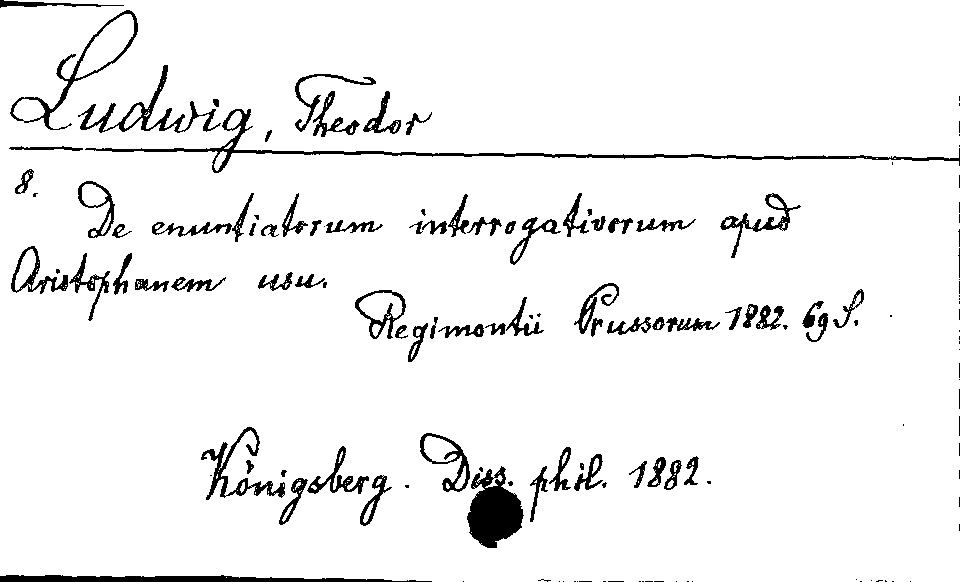 Ludwig, Theodor
8.
De enuntiatorum interrogativorum apud
Aristophanem usu.
Regimontii Prussorum 1882. 69 S.
Königsberg. Diss. phil. 1882.